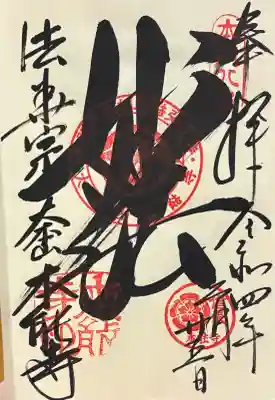 奉拝 令和四年
二月廿五日
妙法
法華宗 大本山 本能寺